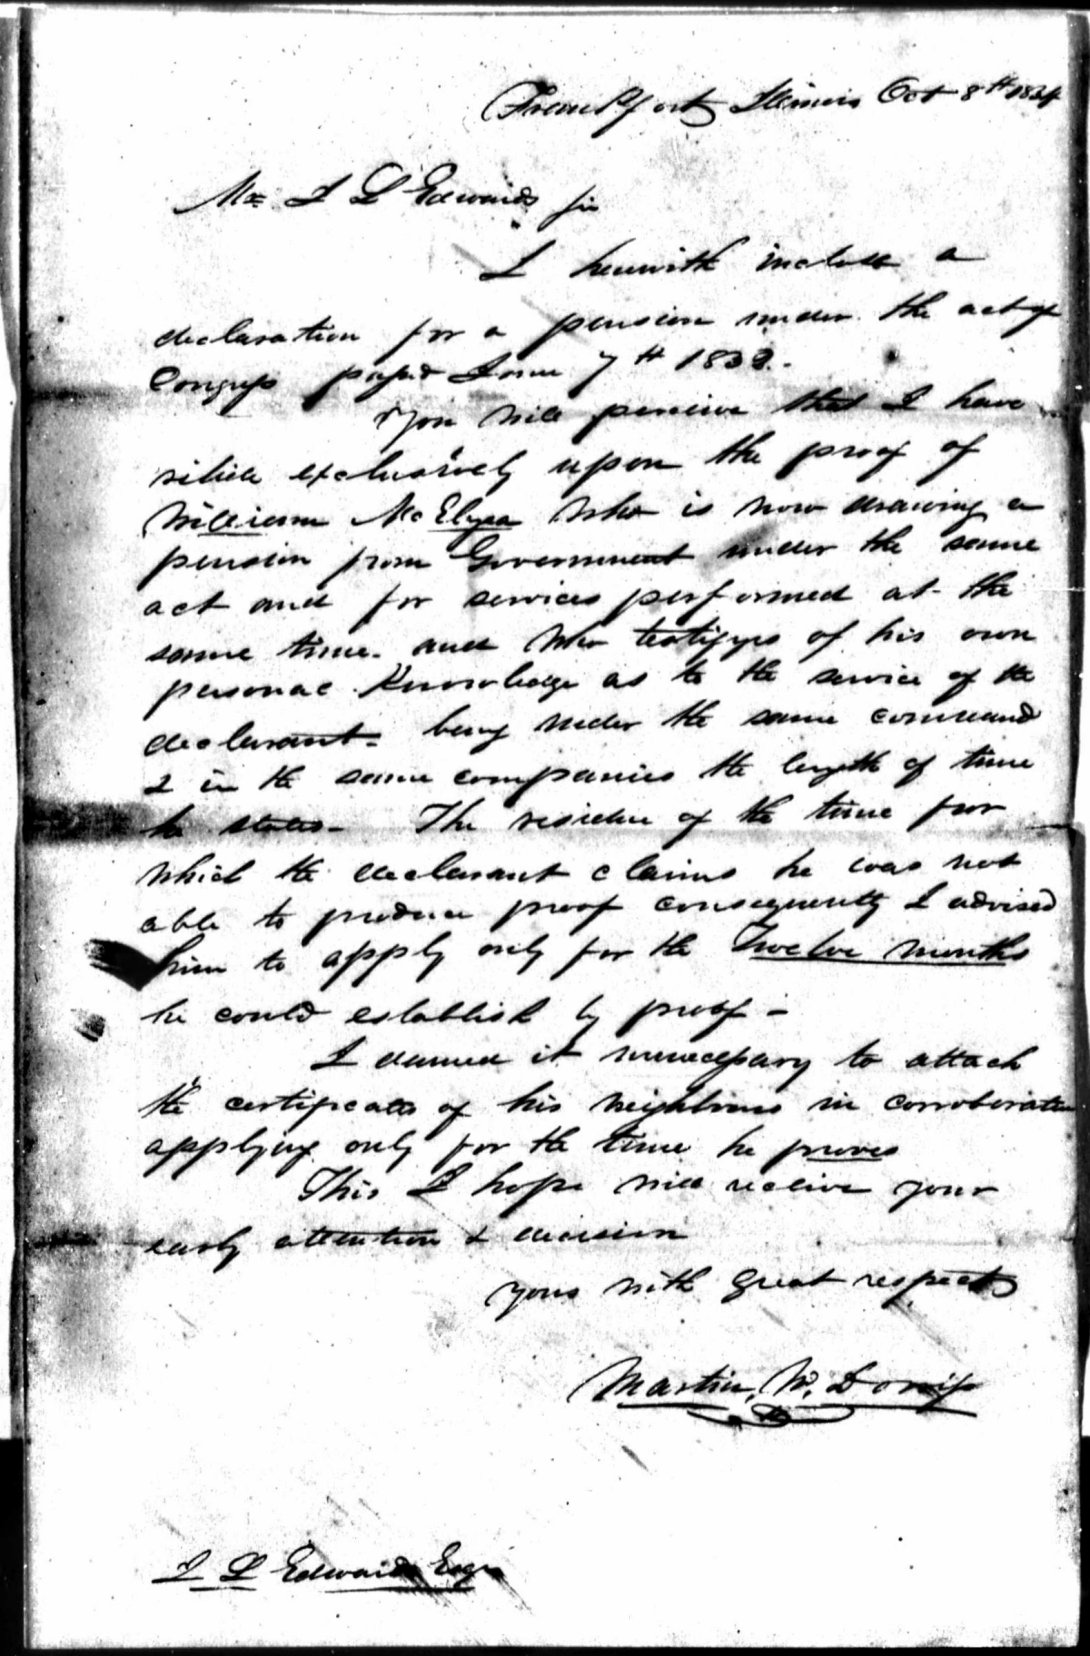 Frankfort Illinois Oct 8th 1834
Mr J L Edwards Sir
I herewith inclose a
declaration for a pension under the act of
Congress passed June 7th 1832.
You will perceive that I have
relied exclusively upon the proof of
William McElyea who is now drawing a
pension from Government under the same
act and for services performed at the
same time. and who testifyes of his own
personal Knowledge as to the service of the
declarant - being under the same command
& in the same companies the length of time
he states - The residue of the time for
which the declarant claims he was not
able to produce proof consequently I advised
him to apply only for the Twelve months
he could establish by proof -
I deemed it unnecessary to attach
the certificate of his neighbours in corroboration
applying only for the time he proves
This I hope will receive your
early attention & decision
yours with great respect
Martin, W,
J L Edwards Esqr